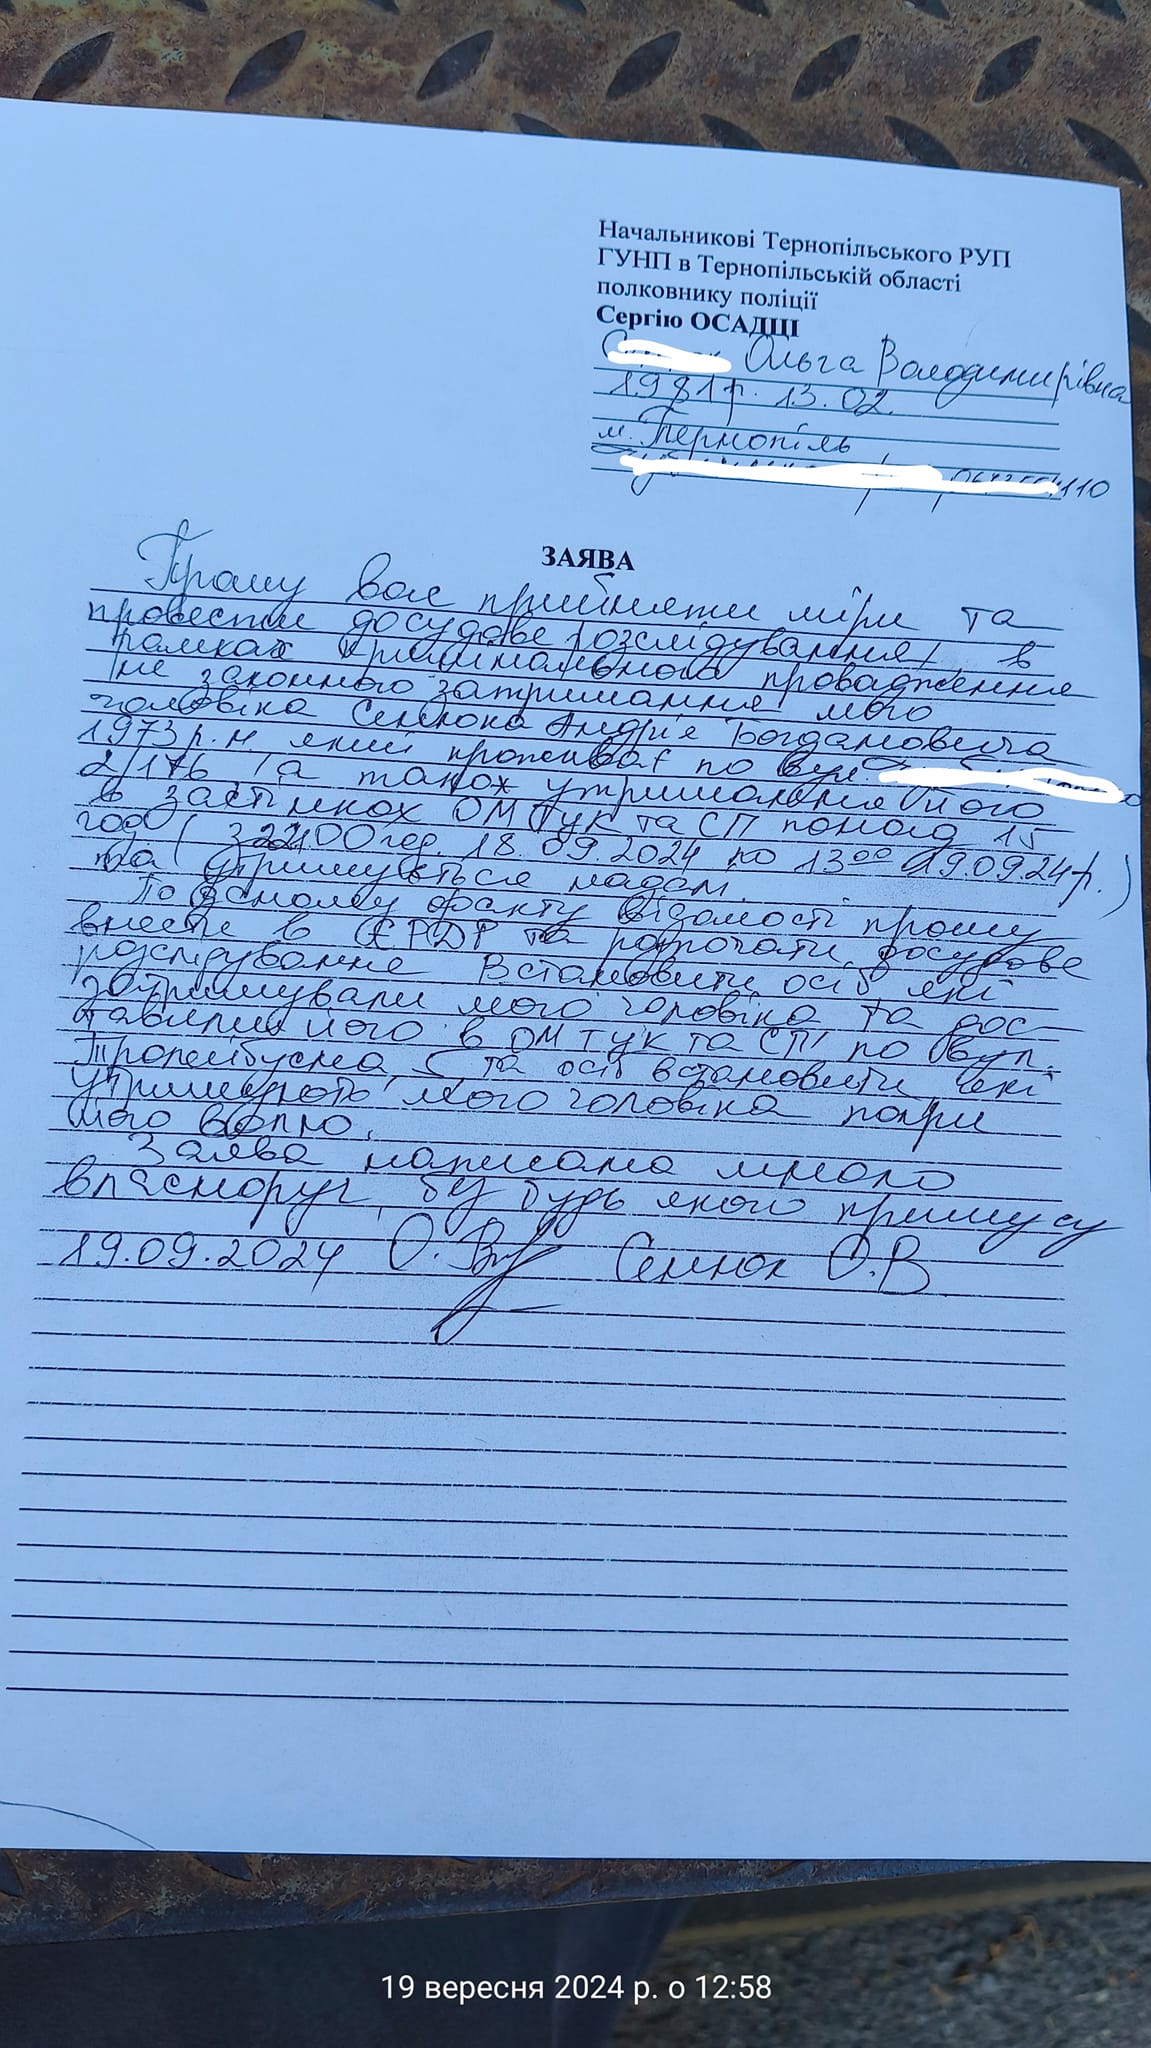 Начальникові Тернопільського РУП
ГУНП в Тернопільській області
полковнику поліції
Сергію ОСАДЦІ
Ольга Володимирівна
1981р. 13.02.
м. Тернопіль
110
ЗАЯВА
Прошу вас прийняти міри та
провести досудове розслідування в
рамках кримінального провадження
не законного затримання мого
чоловіка Сеннюка Андрія Богдановича
1973р.н. який проживає по вул.
2/176 та також утримання його
в застінках ОМТУК та СП понад 15
год ( з 22.00 год. 18.09.2024 по 13⁰⁰ 19.09.24р.)
та утримується надалі.
По даному факту відомості прошу
внести в ЄРДР та розпочати досудове
розслідування. Встановити осіб які
затримували мого чоловіка та дос-
тавили його в ОМТУК та СП по вул.
Тролейбусна 5 та осіб встановити які
утримують мого чоловіка попри
його волю.
Заява написана мною
власноруч, без будь якого примусу
19.09.2024 Сеннюк О.В
19 вересня 2024 р. о 12:58